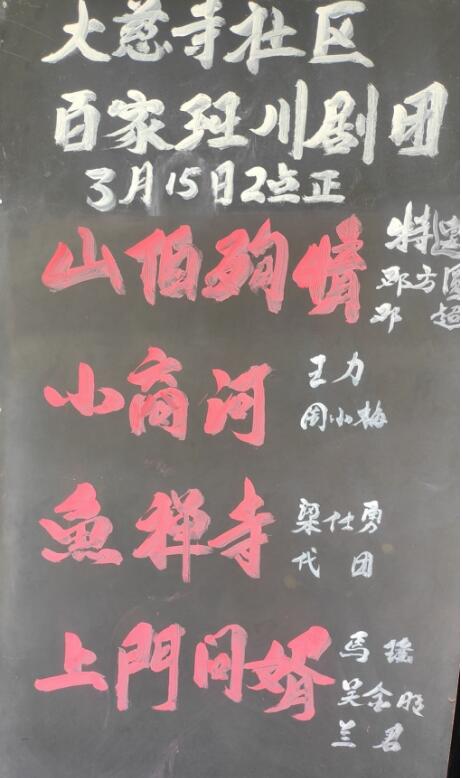 大慈寺社区
百家班川剧团
3月15日2点正
山伯殉情
特邀
邓方圆
邓 超
小商河
王力
周小梅
鱼禅寺
梁仕勇
代 团
上門问婿
马 瑶
吴金明
兰 君